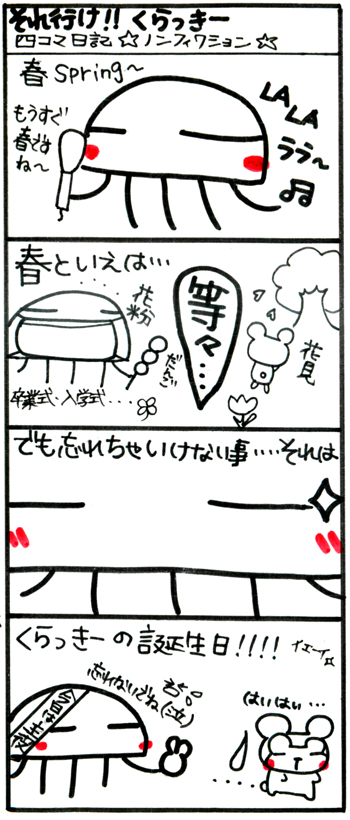 それ行け!! くらっきー
四コマ日記 ☆ノンフィクション☆
春 spring〜
もうすぐ
春ですね〜
LALA
ララ〜
春といえは…
花粉
だんご
等々…
花見
卒業式・入学式・・・
でも忘れちゃいけない事‥‥それは
くらっきーの誕生日!!!!
イエーイ☆
今日の主役
忘れないでね(泣)
はいはい…